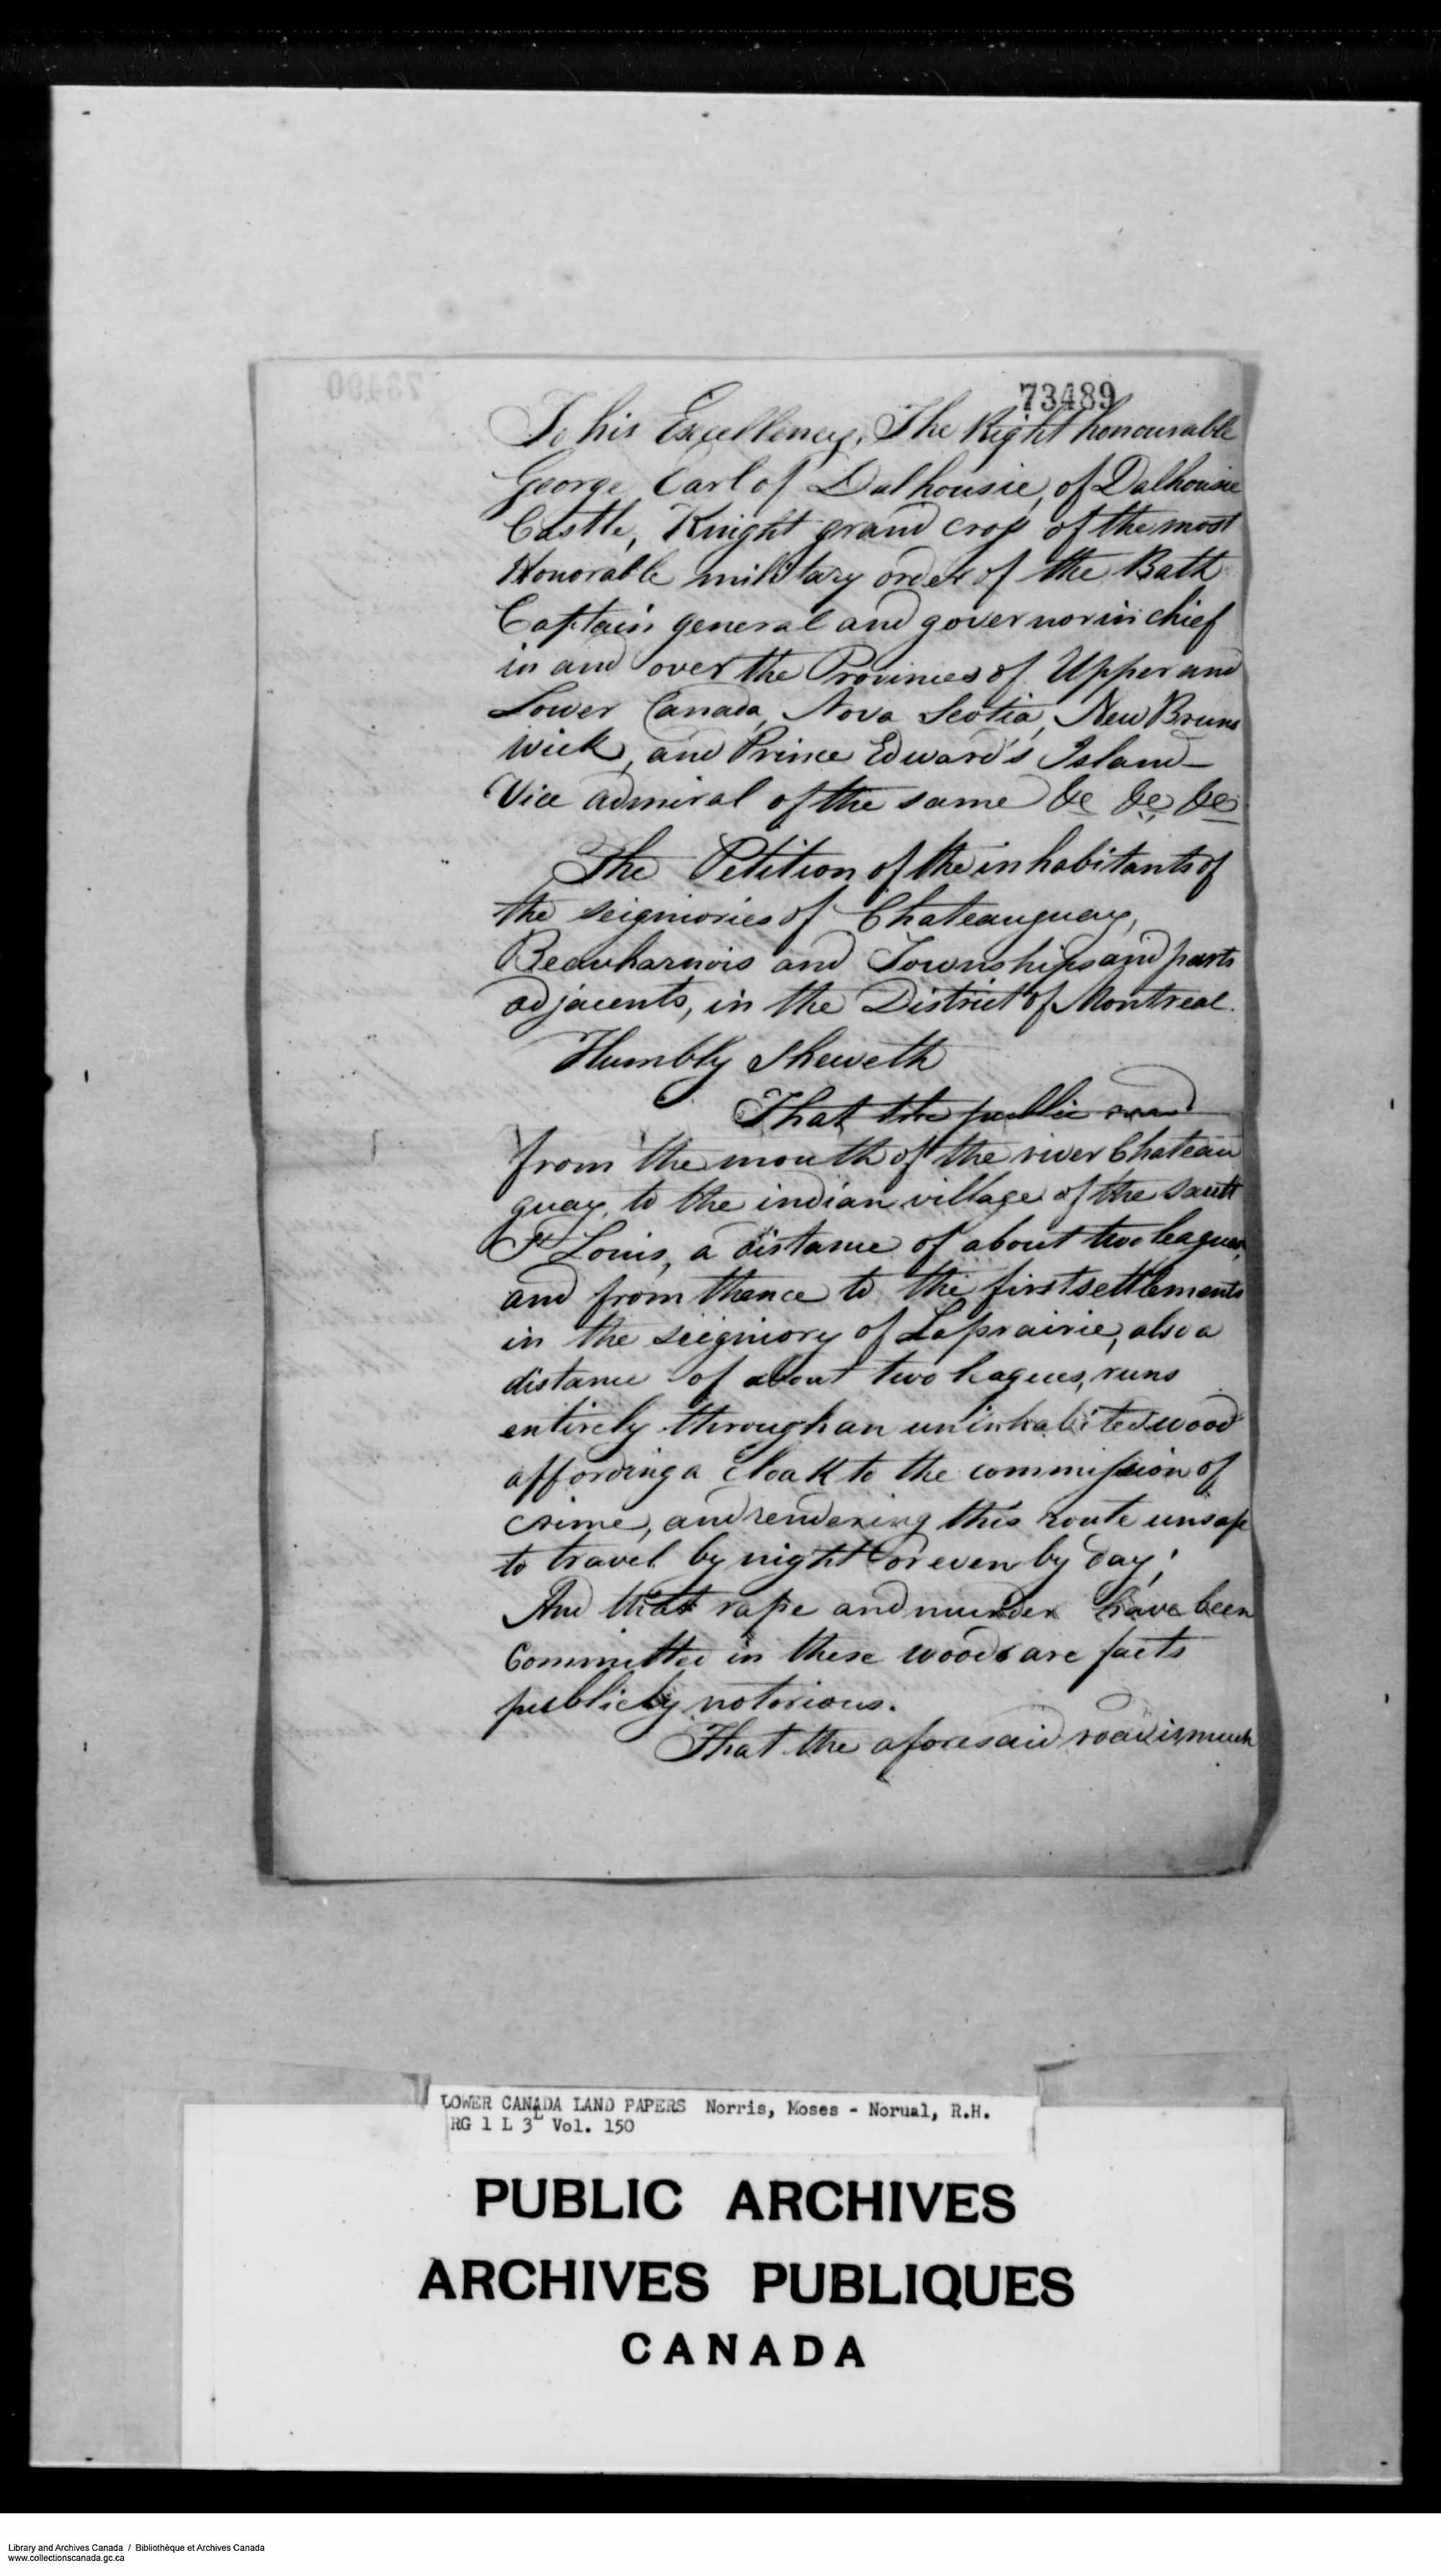 73489
To his Excellency, The Right honourable
George Earl of Dalhousie, of Dalhousie
Castle, Knight grand cross of the most
Honorable military order of the Bath
Captain general and governor in chief
in and over the Provinces of Upper and
Lower Canada, Nova Scotia, New Bruns
wick, and Prince Edward's Island—
Vice admiral of the same &c &c, &c
The Petition of the inhabitants of
the seigniories of Chateauguay,
Beauharnois and Townships and parts
adjacents, in the District of Montreal.
Humbly Sheweth
That the public road
from the mouth of the river Chateau
guay, to the indian village of the Sault
St Louis, a distance of about two leagues,
and from thence to the first settlements
in the seigniory of Laprairie, also a
distance of about two leagues, runs
entirely through an uninhabited wood
affording a cloak to the commission of
crime, and rendering this route unsafe
to travel by night or even by day;
And that rape and murder have been
Committed in these woods are facts
publicly notorious.
That the aforesaid road is much
LOWER CANADA LAND PAPERS Norris, Moses - Norual, R.H.
RG 1 L 3L Vol. 150
PUBLIC ARCHIVES
ARCHIVES PUBLIQUES
CANADA
Library and Archives Canada / Bibliothèque et Archives Canada
www.collectionscanada.gc.ca